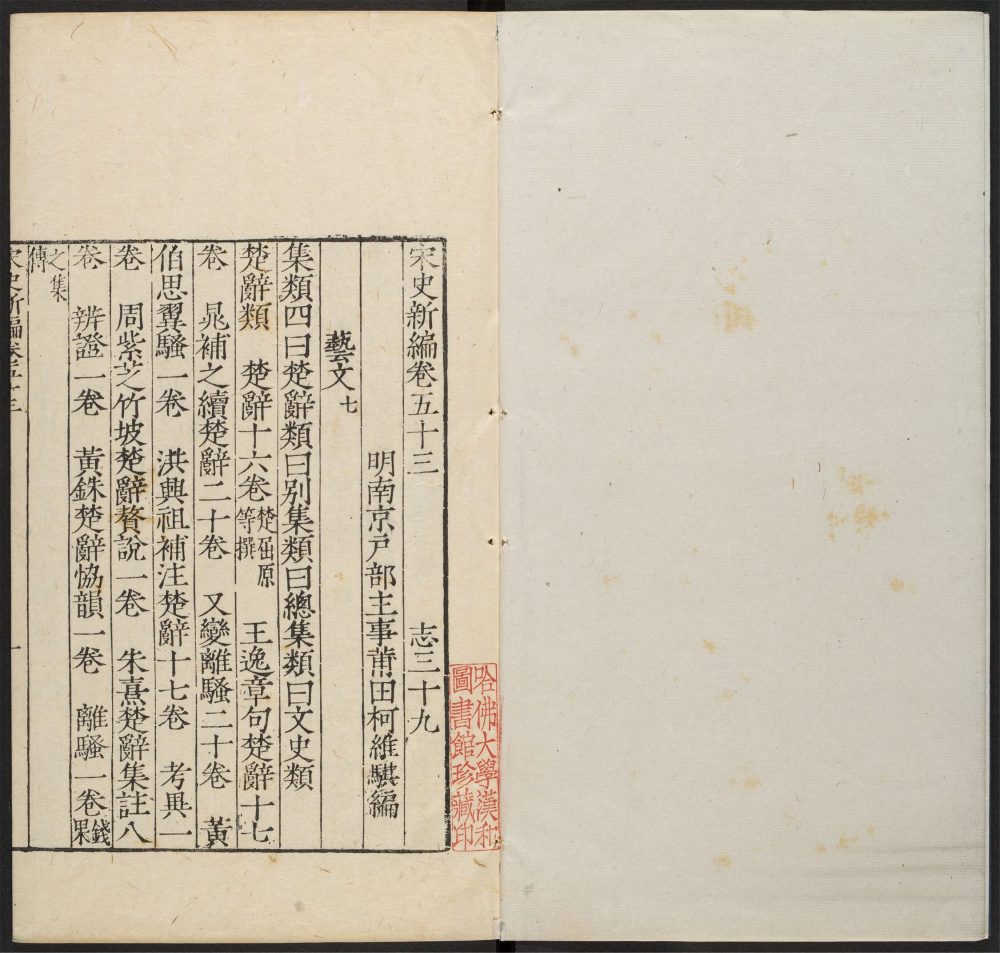 宋史新編卷五十三 志三十九
明南京戸部主事莆田柯維騏編
藝文七
集類四曰楚辭類曰別集類曰總集類曰文史類
楚辭類 楚辭十六卷楚屈原等撰 王逸章句楚辭十七
卷 晁補之續楚辭二十卷 又變離騷二十卷 黃
伯思翼騷一卷 洪興祖補注楚辭十七卷 考異一
卷 周紫芝竹坡楚辭贅說一卷 朱熹楚辭集註八
卷 辨證一卷 黃銖楚辭恊韻一卷 離騷一卷錢杲
之集傳
宋史新編卷五十三 一
哈佛大學漢和
圖書館珍藏印